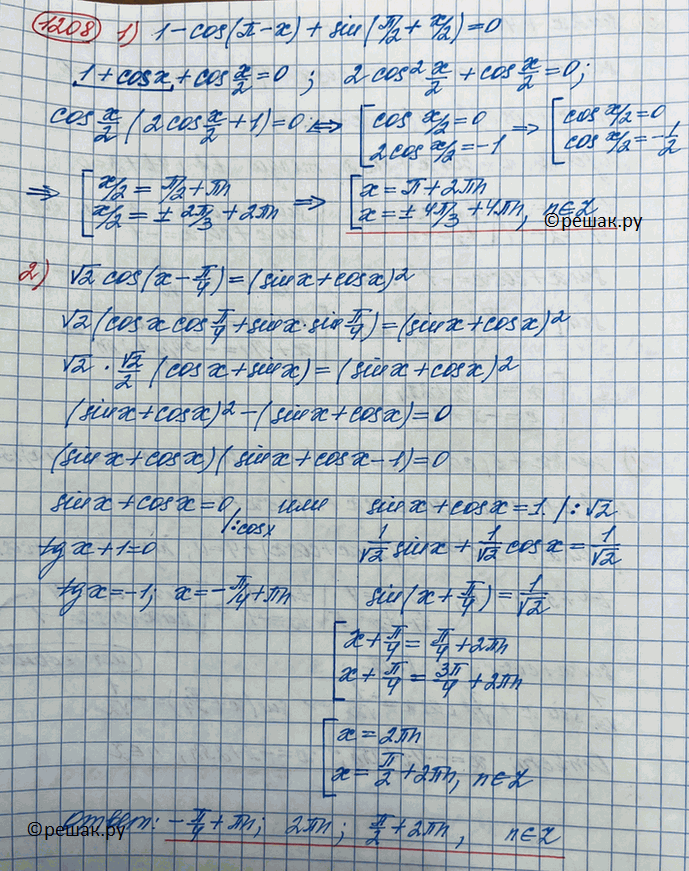 1208 1) 1-cos(π-x) + sin(π/2 + x/2)=0
1+cosx+cos x/2=0 ; 2cos² x/2 + cos x/2=0;
cos x/2 (2cos x/2 +1)=0 ⇔ [cos x/2=0 2cos x/2=-1 ⇒ [cos x/2=0 cos x/2=-1/2
⇒ [x/2 = π/2+πn x/2 = ± 2π/3 + 2πn ⇒ [x=π+2πn x=± 4π/3 +4πn, n∈Z
©решак.ру
2) √2 cos(x-π/4)=(sinx+cosx)²
√2(cosx cos π/4+sinx·sin π/4)=(sinx+cosx)²
√2 · √2/2 (cosx+sinx)=(sinx+cosx)²
(sinx+cosx)²-(sinx+cosx)=0
(sinx+cosx)(sinx+cosx-1)=0
sinx+cosx=0 |:cosx или sinx+cosx=1 |:√2
tgx+1=0 1/√2 sinx+ 1/√2 cosx= 1/√2
tgx=-1; x=-π/4+πn sin(x+π/4)=1/√2
[x+π/4=π/4+2πn
x+π/4=3π/4+2πn
[x=2πn
x=π/2+2πn, n∈Z
Ответ: -π/4+πn; 2πn; π/2+2πn, n∈Z
©решак.ру